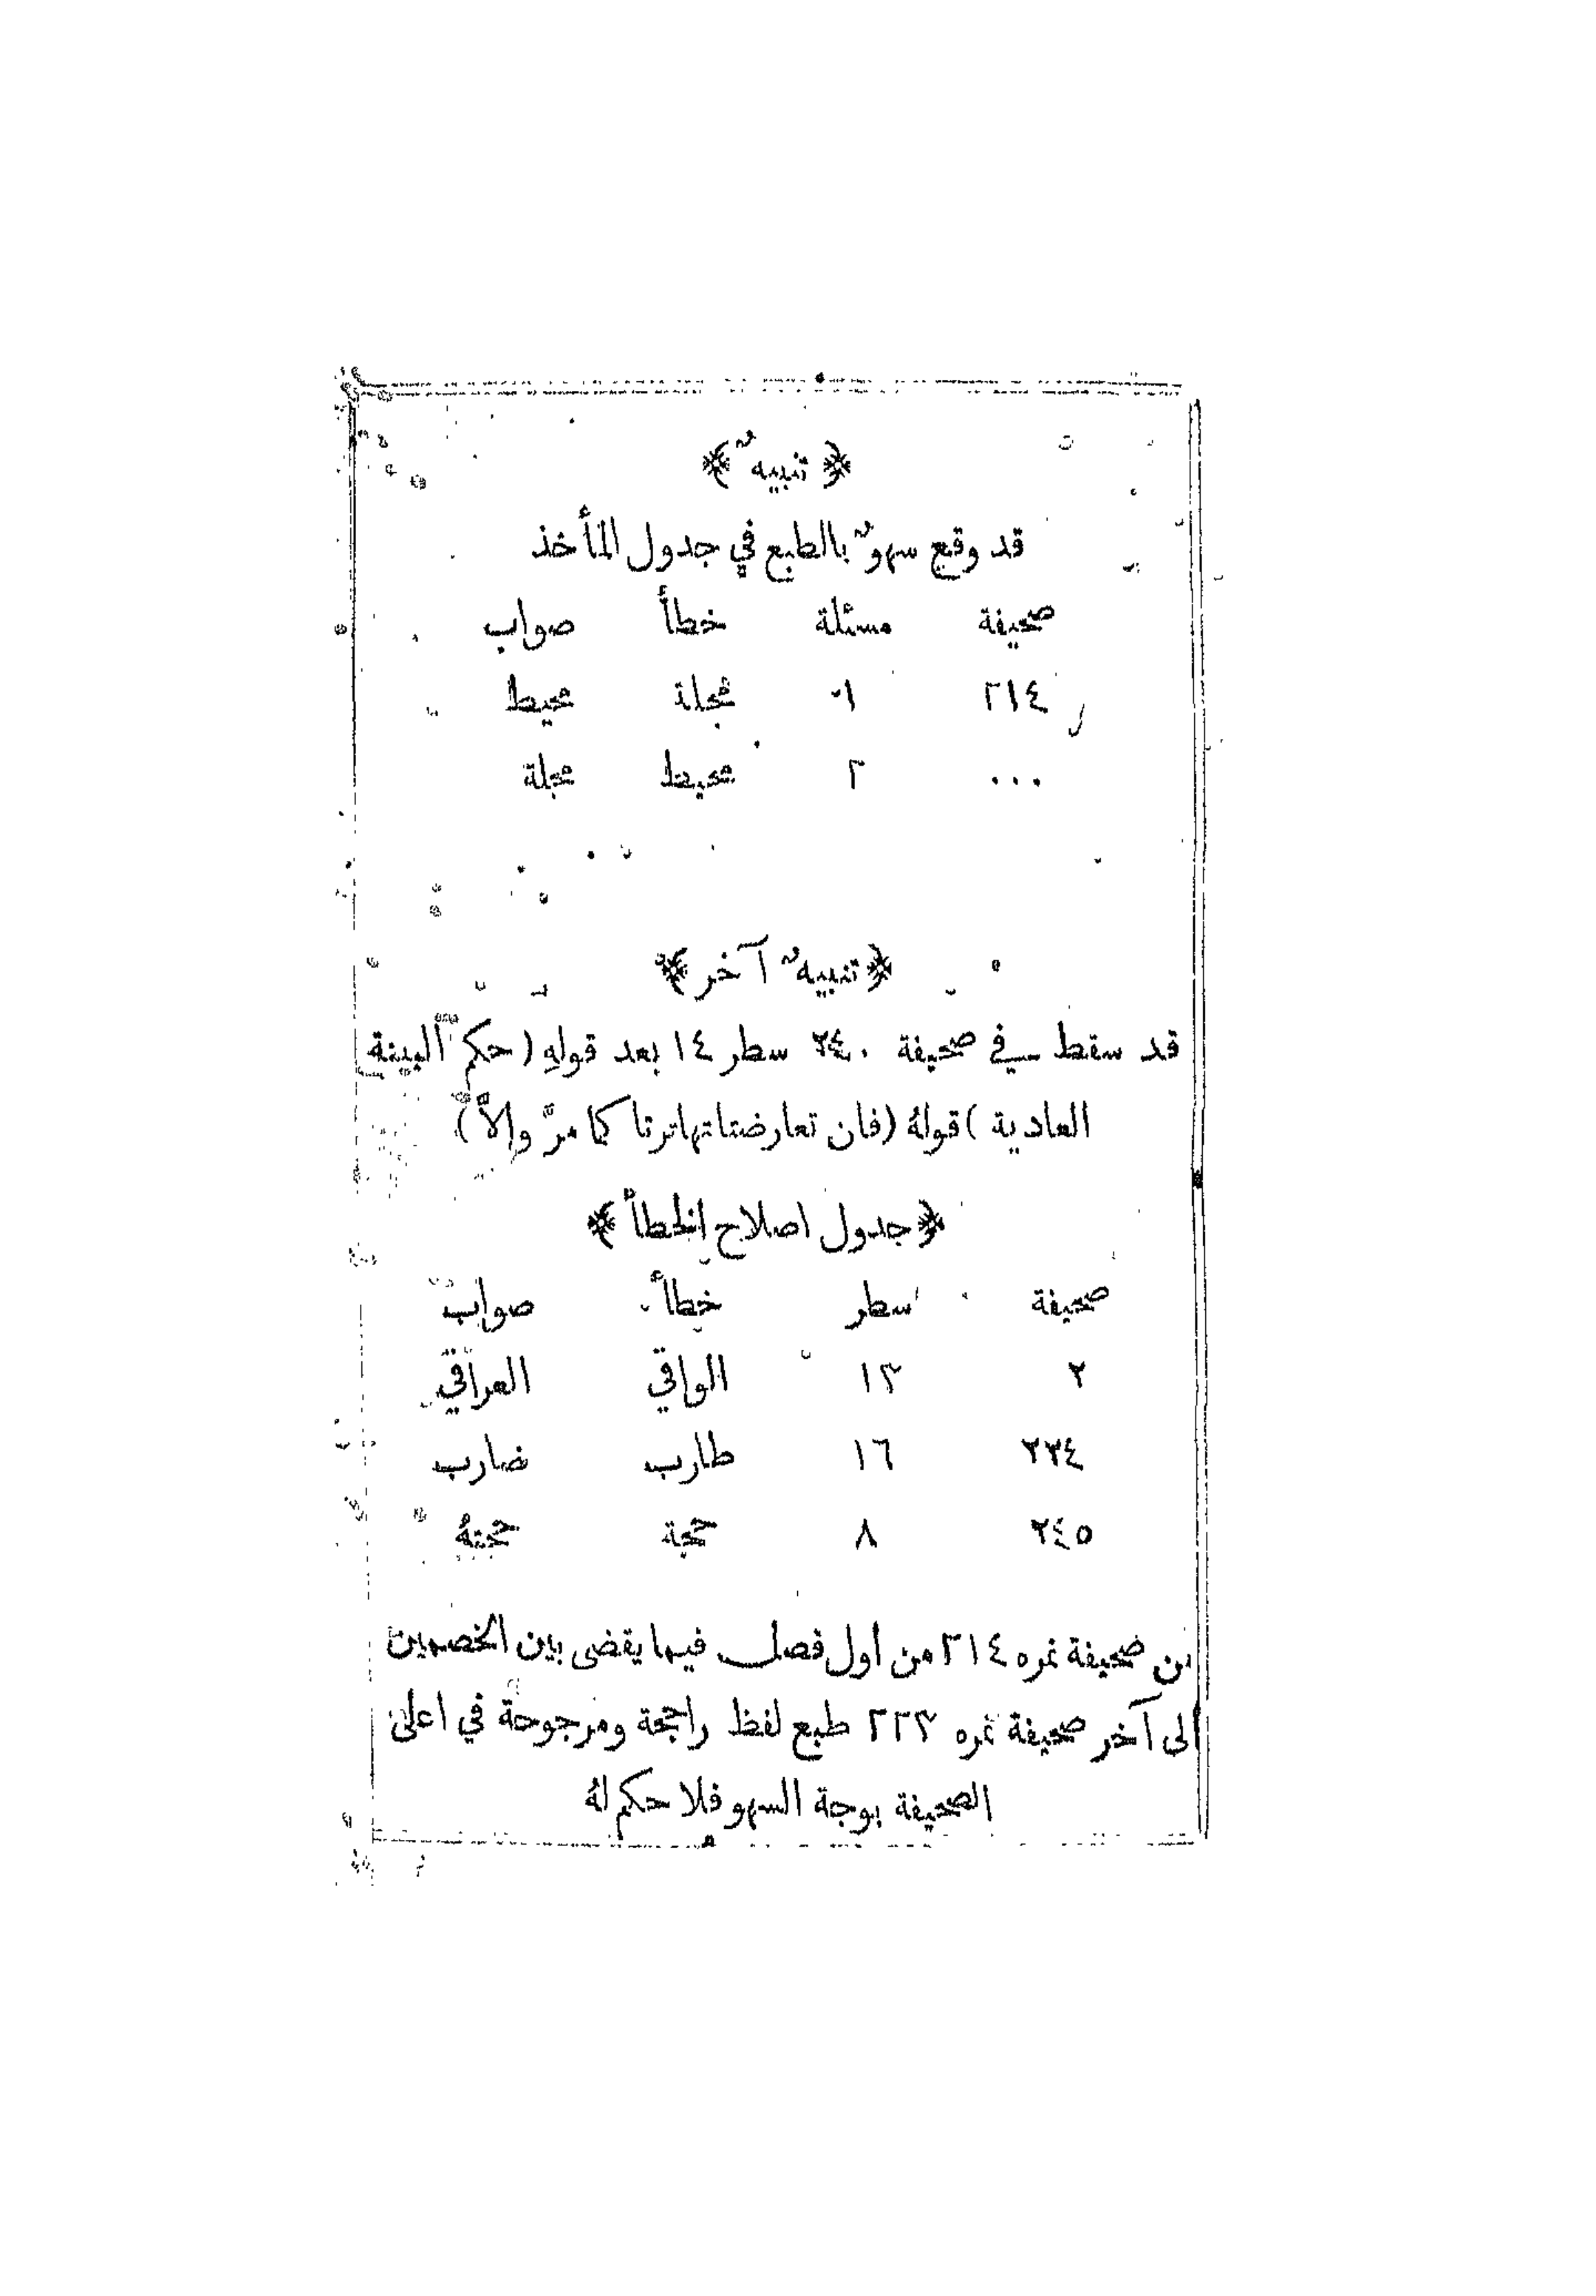 ﴿ تنبيهٌ ﴾
قد وقع سهوٌ بالطبع في جدول المأخذ
صحيفة مسئلة خطأ صواب
٢١٤ ١ مجلة محيط
... ٢ محيط مجلة
﴿ تنبيهٌ آخر ﴾
قد سقط في صحيفة ٢٤٠ سطر ١٤ بعد قولهِ (حكم البينة
العادية) قولهُ (فان تعارضتا تهاترتا كما مرّ والاّ)
﴿ جدول اصلاح الخطأ ﴾
صحيفة سطر خطأ صواب
٢ ١٣ الواقي العراقي
٢٣٤ ١٦ طارب ضارب
٢٤٥ ٨ حجة حجتهُ
من صحيفة نمره ٢١٤ من اول فصل فيما يقضى بين الخصمين
الى آخر صحيفة نمره ٢٢٣ طبع لفظ راجحة ومرجوحة في اعلى
الصحيفة بوجة السهو فلا حكم لهُ